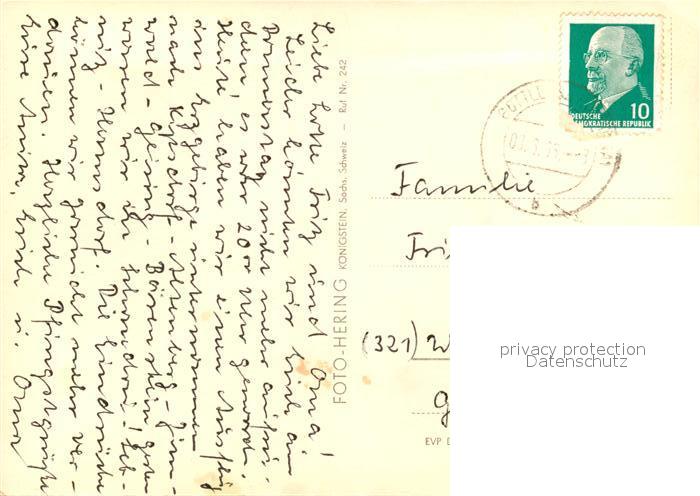 Liebe Lotte Fritz und Oma!
Leider konnten wir Euch am
Donnerstag nicht mehr
es war 20oo Uhr geworden.
Heute haben wir einen Ausflug
ins Erzgebirge unternommen
nach Kipsdorf - Altenberg - Zinn-
wald - Geising - Bärenstein gestern
waren wir in Schandau! Seb-
nitz - Hermsdorf. Die Eindrücke
können wir garnicht mehr ver-
dauen. Herzliche Pfingstgrüße
Eure Erich u. Oma
FOTO-HERING KÖNIGSTEIN, Sächs. Schweiz — Ruf Nr. 242
DEUTSCHE
DEMOKRATISCHE REPUBLIK
10
Familie
Fri
(321) W
EVP D
privacy protection
Datenschutz